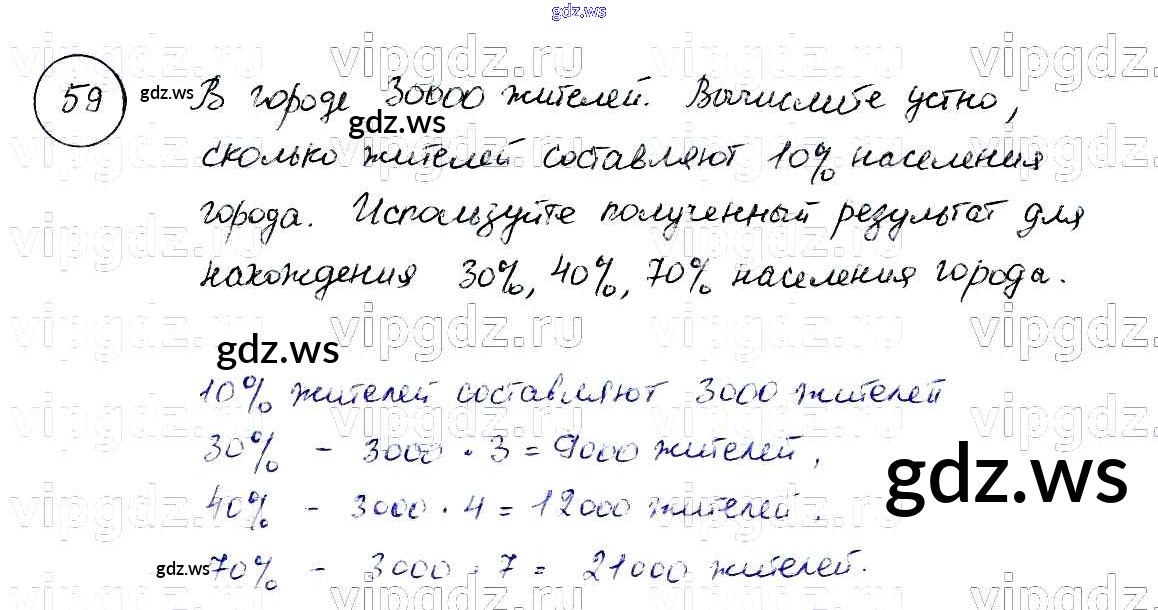 gdz.ws
vipgdz.ru vipgdz.ru vipgdz.ru vipgdz.ru
59 gdz.ws В городе 30000 жителей. Вычислите устно,
gdz.ws
сколько жителей составляют 10% населения
города. Используйте полученный результат для
нахождения 30%, 40%, 70% населения города.
vipgdz.ru vipgdz.ru vipgdz.ru
gdz.ws
10% жителей составляют 3000 жителей
30% - 3000 · 3 = 9000 жителей,
gdz.ws
40% - 3000 · 4 = 12000 жителей.
gdz.ws 70% - 3000 · 7 = 21000 жителей.